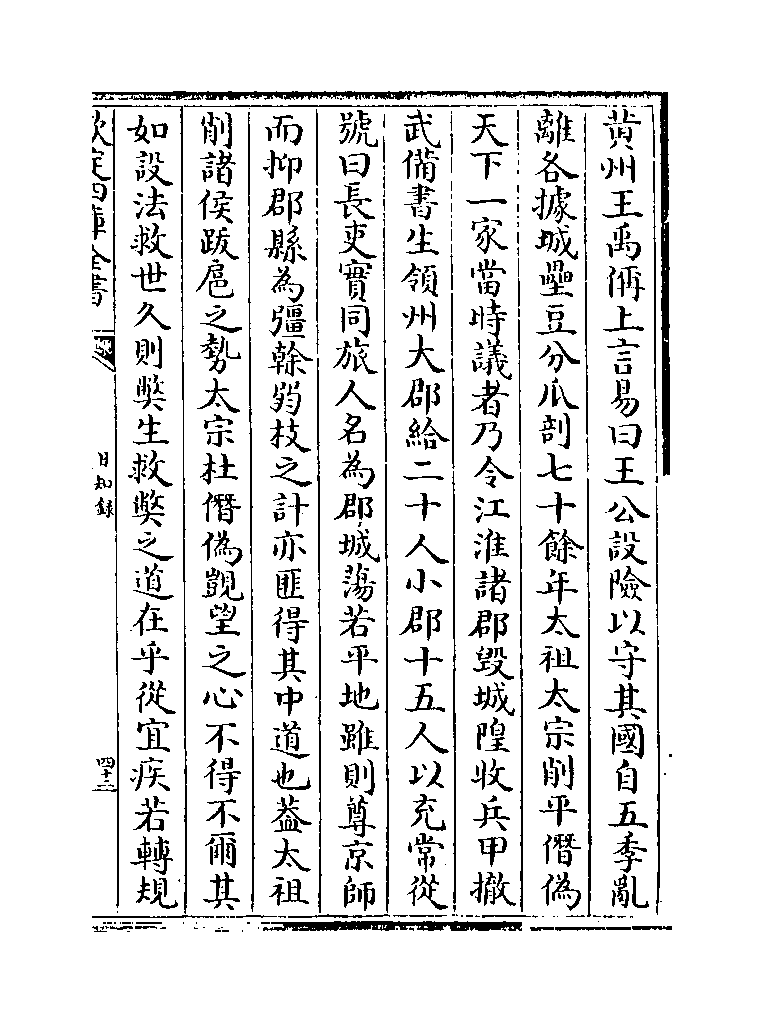 黄州王禹偁上言易曰王公設險以守其國自五季亂
離各據城壘豆分瓜剖七十餘年太祖太宗削平僭偽
天下一家當時議者乃令江淮諸郡毀城隍收兵甲撤
武備書生領州大郡給二十人小郡十五人以充常從
號曰長吏實同旅人名為郡城蕩若平地雖則尊京師
而抑郡縣為彊榦弱枝之計亦匪得其中道也葢太祖
削諸侯跋扈之勢太宗杜僭偽覬望之心不得不爾其
如設法救世久則弊生救弊之道在乎從宜疾若轉規
欽定四庫全書
日知録
四十三